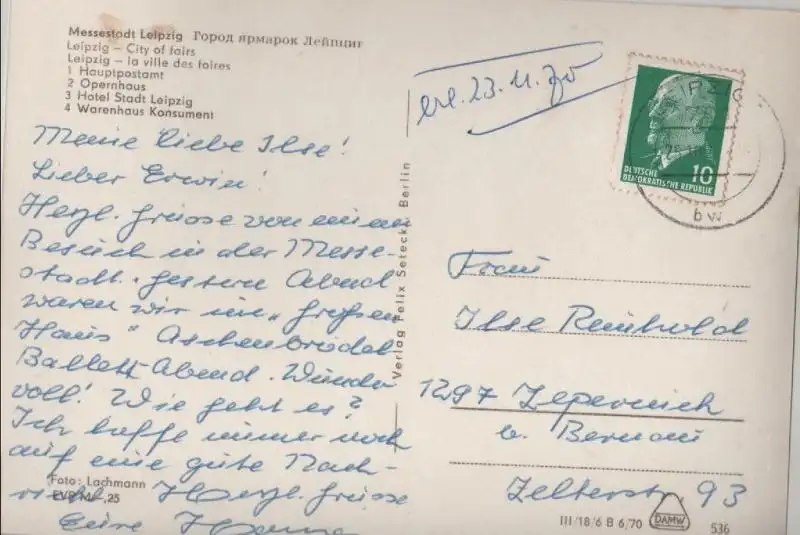 Messestadt Leipzig Город ярмарок Лейпциг
Leipzig – City of fairs
Leipzig – la ville des foires
1 Hauptpostamt
2 Opernhaus
3 Hotel Stadt Leipzig
4 Warenhaus Konsument
Meine liebe Ilse!
Lieber Erwin!
Herzl. Grüsse von einem
Besuch in der Messe-
stadt. Gestern Abend
waren wir im „Großen
Haus" Aschenbrödel
Ballett Abend. Wunder
voll! Wie geht es?
Ich hoffe immer noch
auf eine gute Nach-
richt. Herzl. Grüsse
Eure
Foto: Lachmann
EVP M -,25
Verlag Felix Setecki, Berlin
erl. 23.11.70
DEUTSCHE
DEMOKRATISCHE REPUBLIK
10
bw
Frau
Ilse Reinhold
1297 Zepernick
b. Bernau
Zelterstr. 93
III/18/6 B 6/70
DAMW
536